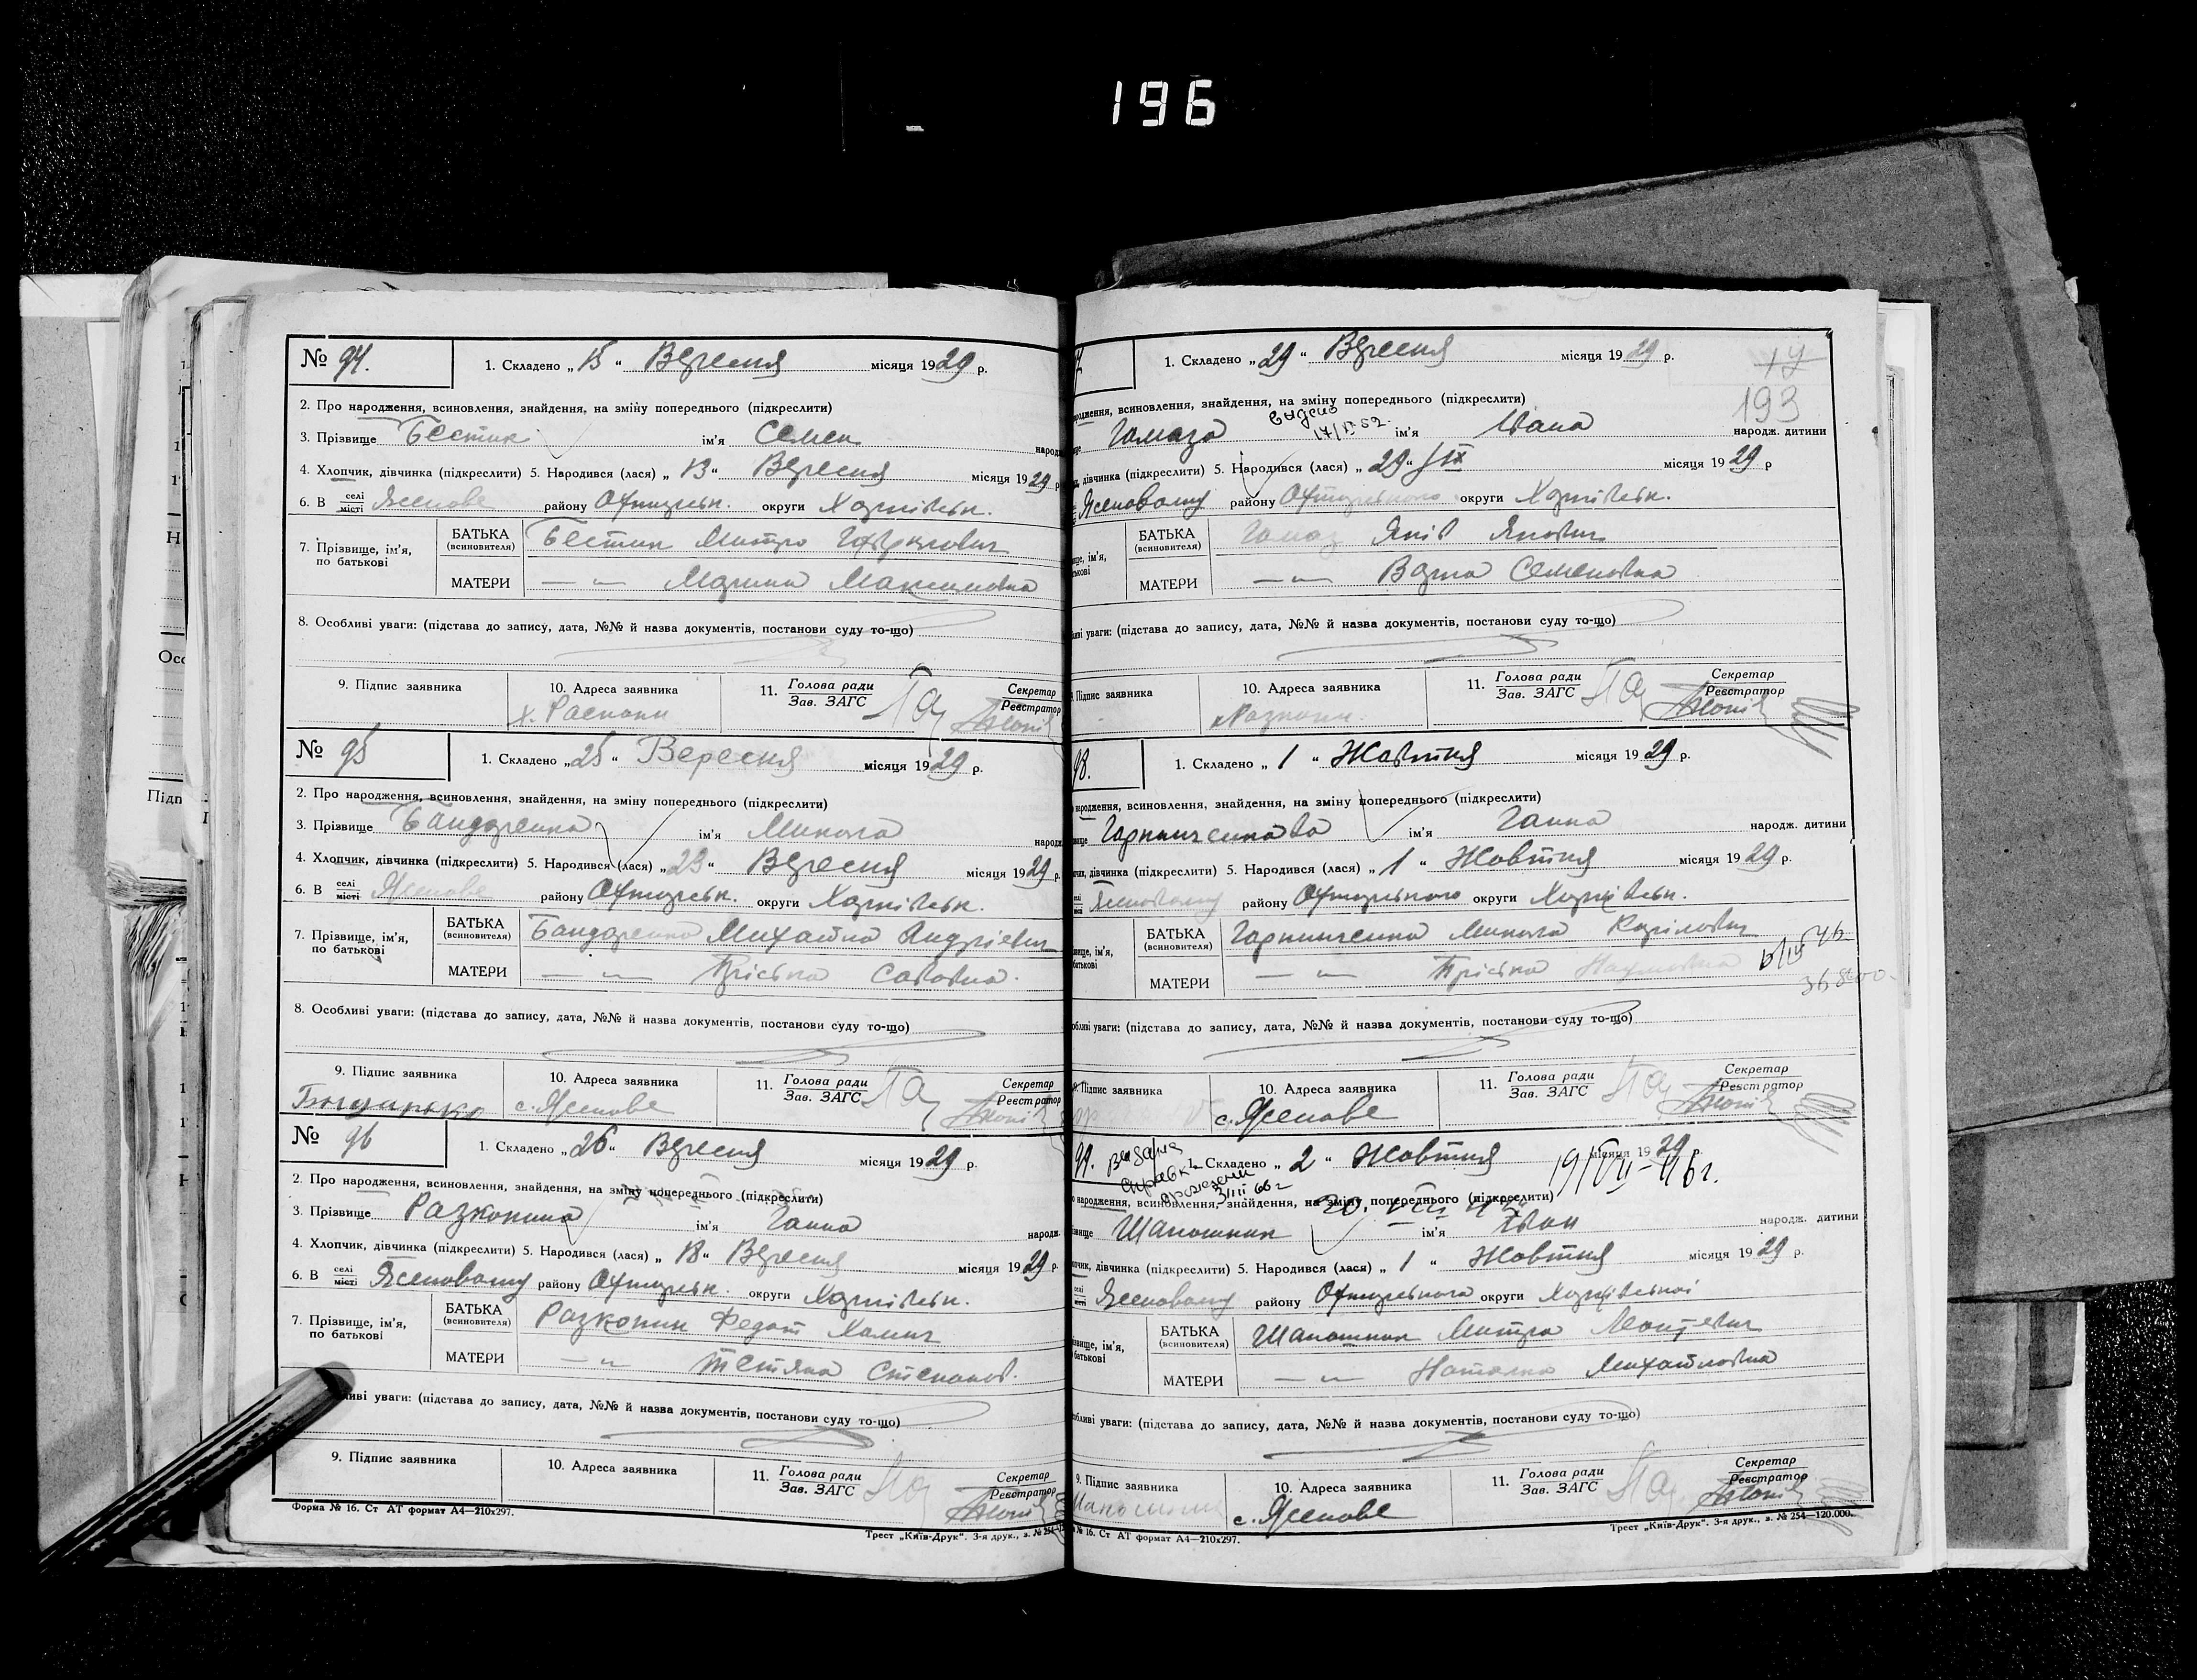 196
№ 94. 1. Складено „15“ Вересня місяця 1929 р.
2. Про народження, всиновлення, знайдення, на зміну попереднього (підкреслити)
3. Прізвище Бестик ім'я Семен народ
4. Хлопчик, дівчинка (підкреслити) 5. Народився (лася) „13“ Вересня місяця 1929 р.
6. В селі місті Ясенове району Охтирськ. округи Харківськ.
7. Прізвище, ім'я, по батькові БАТЬКА (всиновителя) Бестик Митро
МАТЕРИ —"— Марина Максимовна
8. Особливі уваги: (підстава до запису, дата, №№ й назва документів, постанови суду то-що)
9. Підпис заявника 10. Адреса заявника 11. Голова ради Зав. ЗАГС Секретар Реєстратор
№ 95 1. Складено „25“ Вересня місяця 1929 р.
2. Про народження, всиновлення, знайдення, на зміну попереднього (підкреслити)
3. Прізвище Бандаренко ім'я Микола народ
4. Хлопчик, дівчинка (підкреслити) 5. Народився (лася) „23“ Вересня місяця 1929 р.
6. В селі місті Ясенове району Охтирськ. округи Харківськ.
7. Прізвище, ім'я, по батькові БАТЬКА (всиновителя) Бандаренко Михайло Андрієвич
МАТЕРИ —"— Пріська Савовна.
8. Особливі уваги: (підстава до запису, дата, №№ й назва документів, постанови суду то-що)
9. Підпис заявника 10. Адреса заявника 11. Голова ради Зав. ЗАГС Секретар Реєстратор
с. Ясенове
№ 96 1. Складено „26“ Вересня місяця 1929 р.
2. Про народження, всиновлення, знайдення, на зміну попереднього (підкреслити)
3. Прізвище Разкопина ім'я Ганна народ
4. Хлопчик, дівчинка (підкреслити) 5. Народився (лася) „18“ Вересня місяця 1929 р.
6. В селі місті Ясеновому району Охтирськ. округи Харківськ.
7. Прізвище, ім'я, по батькові БАТЬКА (всиновителя) Разкопин Федот
МАТЕРИ —"— Тетяна Степанов.
ливі уваги: (підстава до запису, дата, №№ й назва документів, постанови суду то-що)
9. Підпис заявника 10. Адреса заявника 11. Голова ради Зав. ЗАГС Секретар Реєстратор
Форма № 16. Ст АТ формат А4—210х297.
Трест „Київ-Друк“. 3-я друк., з. № 254—
7 1. Складено „29“ Вересня місяця 1929 р.
17
193
ження, всиновлення, знайдення, на зміну попереднього (підкреслити)
Гамаза ім'я Івана народж. дитини
дівчинка (підкреслити) 5. Народився (лася) „29“ ІХ місяця 1929 р
Ясеновому району Охтирського округи Харківськ.
ім'я, БАТЬКА (всиновителя) Гамаз Яків Якович
МАТЕРИ —"— Варка Семеновна
уваги: (підстава до запису, дата, №№ й назва документів, постанови суду то-що)
Підпис заявника 10. Адреса заявника 11. Голова ради Зав. ЗАГС Секретар Реєстратор
98. 1. Складено „1“ Жовтня місяця 1929 р.
народження, всиновлення, знайдення, на зміну попереднього (підкреслити)
ім'я Ганна народж. дитини
дівчинка (підкреслити) 5. Народився (лася) „1“ Жовтня місяця 1929 р.
Ясеновому району Охтирського округи Харківськ.
ім'я, БАТЬКА (всиновителя) Микола
МАТЕРИ —"— Пріська Наумовна
уваги: (підстава до запису, дата, №№ й назва документів, постанови суду то-що)
9. Підпис заявника 10. Адреса заявника 11. Голова ради Зав. ЗАГС Секретар Реєстратор
с. Ясенове
99. 1. Складено „2“ Жовтня місяця 1929 р.
народження, всиновлення, знайдення, на зміну попереднього (підкреслити)
Шапошник ім'я Іван народж. дитини
дівчинка (підкреслити) 5. Народився (лася) „1“ Жовтня місяця 1929 р.
Ясеновому району Охтирського округи Харківської
ім'я, БАТЬКА (всиновителя) Шапошник Митро
МАТЕРИ —"— Наталка Михайловна
уваги: (підстава до запису, дата, №№ й назва документів, постанови суду то-що)
9. Підпис заявника 10. Адреса заявника 11. Голова ради Зав. ЗАГС Секретар Реєстратор
с. Ясенове
№ 16. Ст АТ формат А4—210х297.
Трест „Київ-Друк“. 3-я друк., з. № 254—120.000.